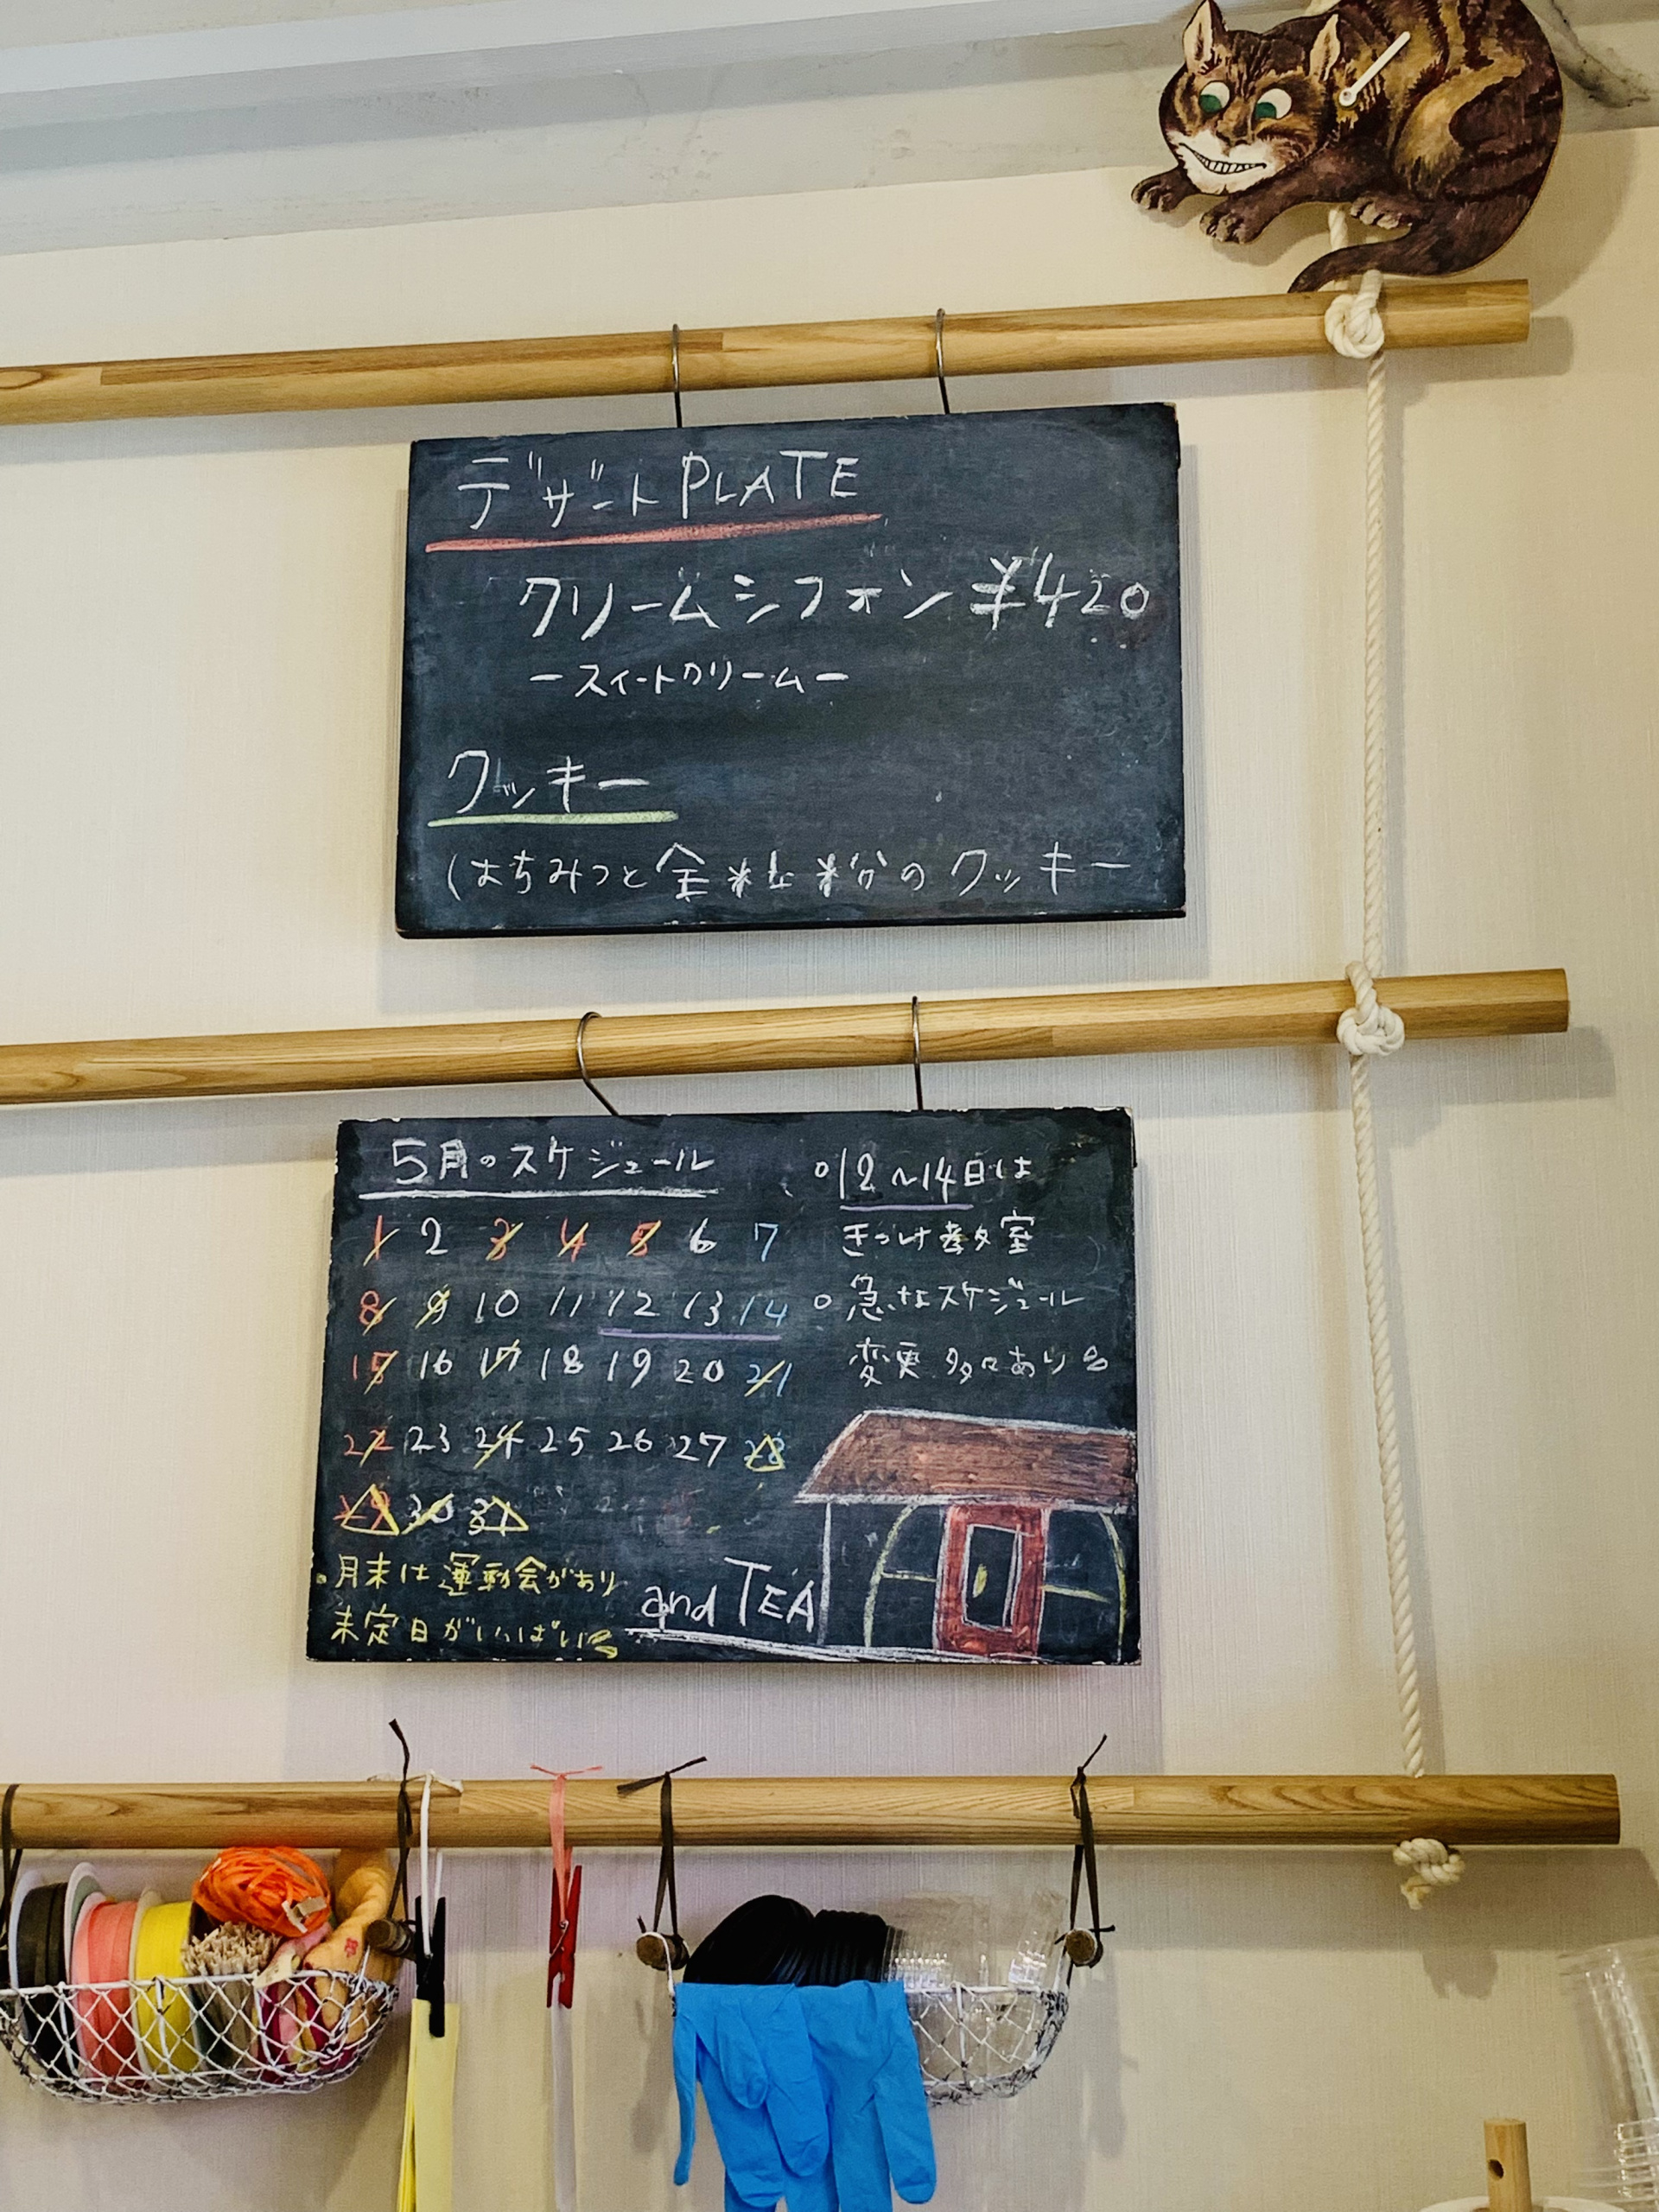 デザートPLATE
クリームシフォン ¥420
ースイートクリームー
クッキー
(はちみつと全粒粉のクッキー
5月のスケジュール
1 2 3 4 5 6 7
8 9 10 11 12 13 14
15 16 17 18 19 20 21
22 23 24 25 26 27 28
29 30 31
月末は運動会があり
未定日がいっぱい
○12~14日は
きつけ教室
○急なスケジュール
変更 多々あり
and TEA